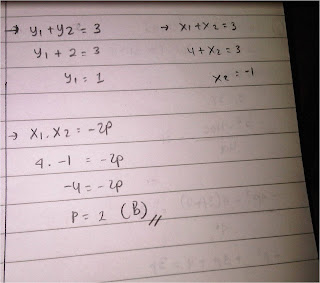 → y₁ + y₂ = 3
y₁ + 2 = 3
y₁ = 1
→ x₁ + x₂ = 3
4 + x₂ = 3
x₂ = -1
→ x₁ . x₂ = -2p
4 . -1 = -2p
-4 = -2p
p = 2 (B) //